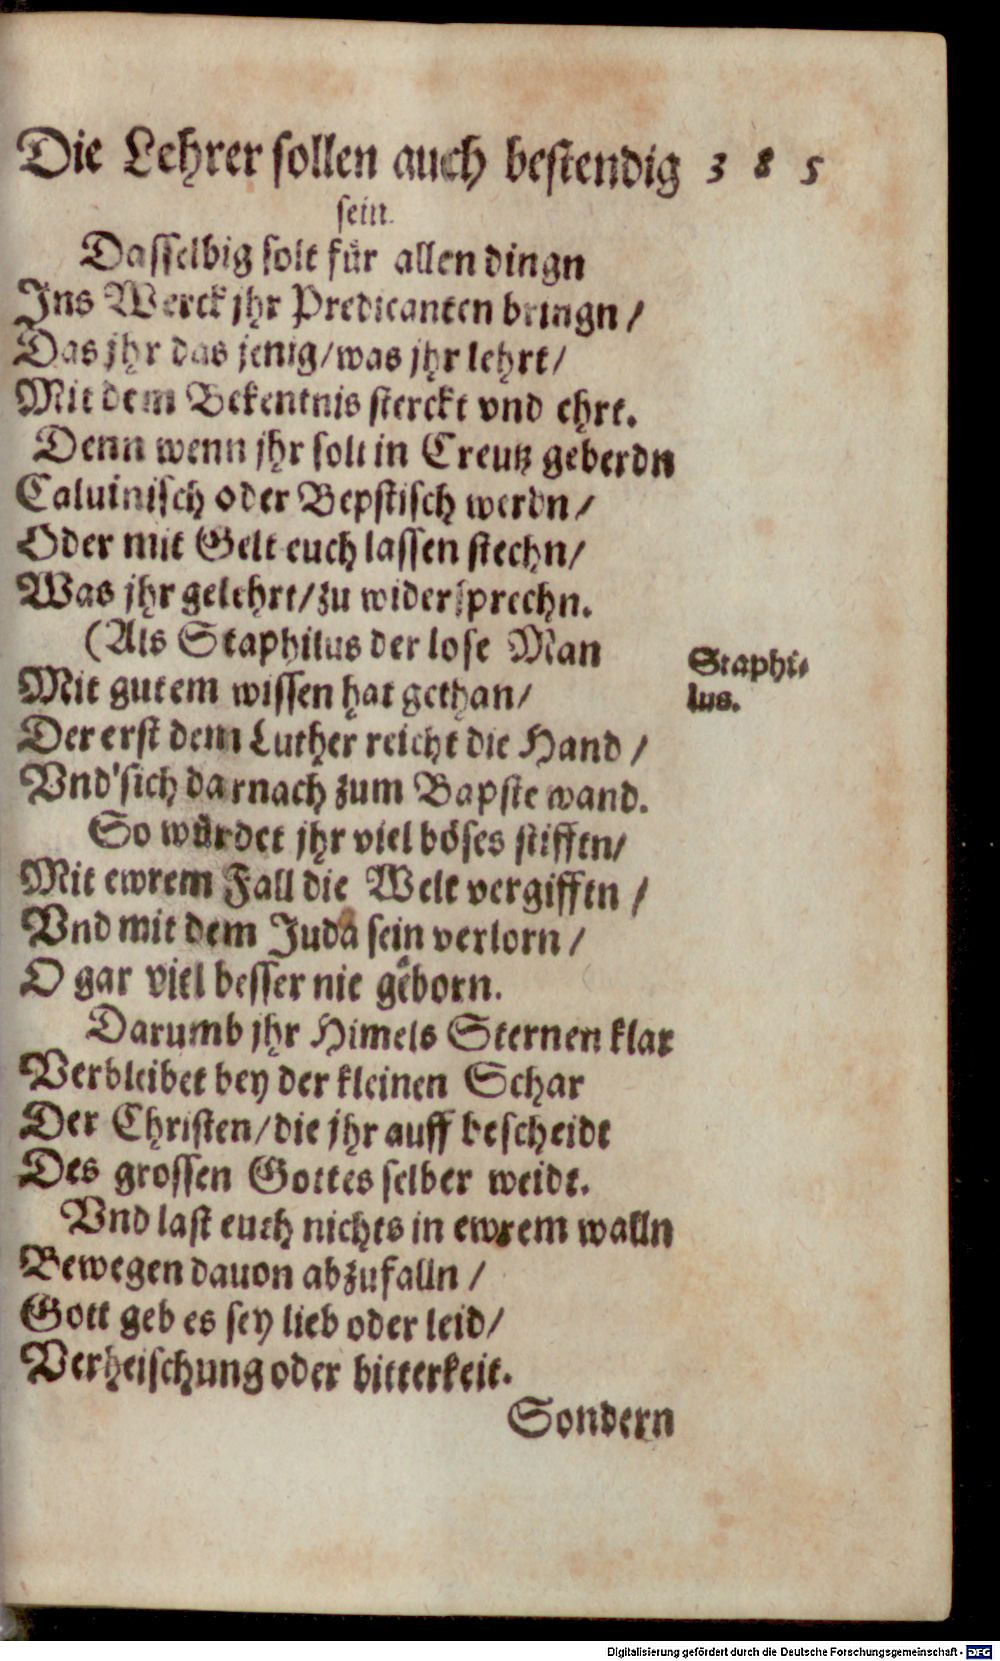 Die Lehrer sollen auch bestendig 385
sein.
Dasselbig solt für allen dingn
Ins Werck jhr Predicanten bringn /
Das jhr das jenig / was jhr lehrt /
Mit dem Bekentnis sterckt vnd ehrt.
Denn wenn jhr solt in Creutz geberdn
Caluinisch oder Bepstisch werdn /
Oder mit Gelt euch lassen stechn /
Was jhr gelehrt / zu widersprechn.
(Als Staphilus der lose Man
Staphi-
lus.
Mit gutem wissen hat gethan /
Der erst dem Luther reicht die Hand /
Vnd sich darnach zum Bapste wand.
So würdet jhr viel böses stifftn /
Mit ewrem Fall die Welt vergifftn /
Vnd mit dem Juda sein verlorn /
O gar viel besser nie geborn.
Darumb jhr Himels Sternen klar
Verbleibet bey der kleinen Schar
Der Christen / die jhr auff bescheidt
Des grossen Gottes selber weidt.
Vnd last euch nichts in ewrem walln
Bewegen dauon abzufalln /
Gott geb es sey lieb oder leid /
Verheischung oder bitterkeit.
Sondern
Digitalisierung gefördert durch die Deutsche Forschungsgemeinschaft - DFG